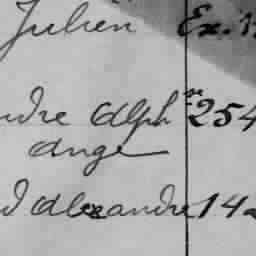 Julien Ex.
ndre Alph 254
Ange
d Alexandre 142